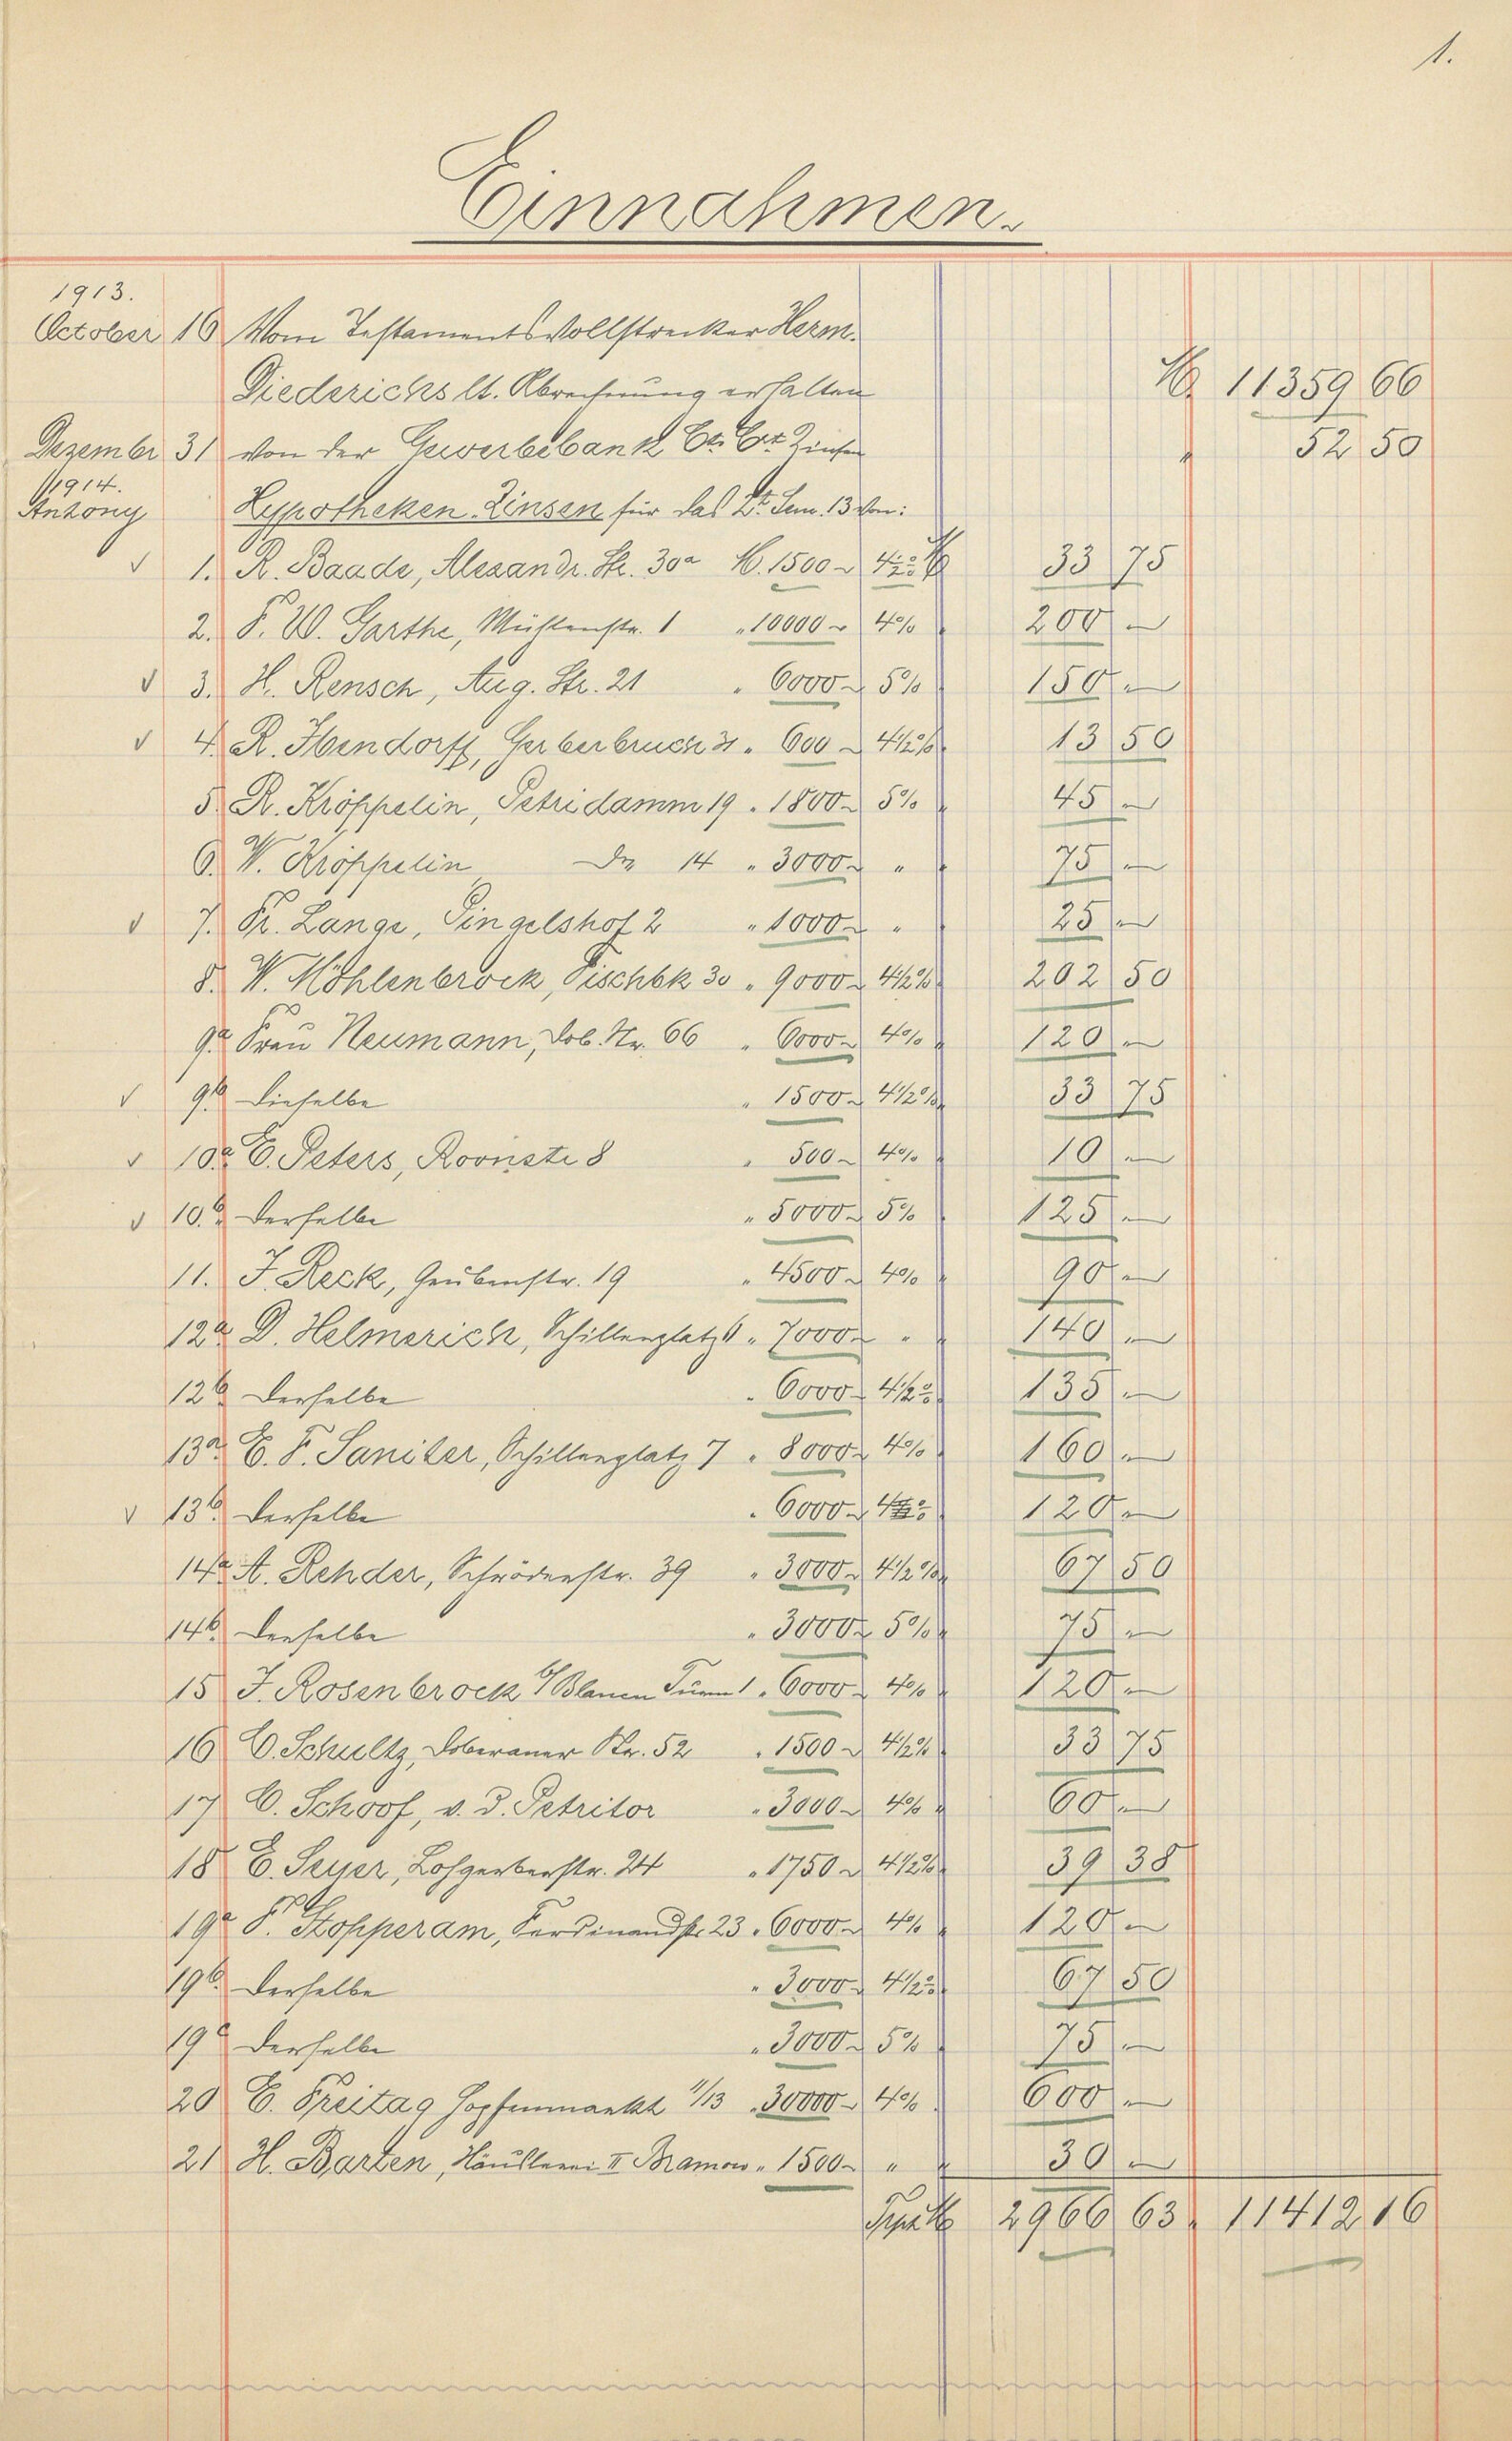 1.
Einnahmen.
1913.
October 16 Vom Testamentsvollstrecker Herm.
Diederichs lt. Abrechnung erhalten M 11359 66
Dezember 31 von der Gewerbebank Ct. Crt Zinsen " 52 50
1914.
Antony Hypotheken-Zinsen für das 2t. Sem. 13 von:
√ 1. R. Baade, Alexandr. Str. 30a M. 1500 – 4½% M 33 75
2. F. W. Garthe, Mühlenstr. 1 " 10000 – 4% " 200 –
√ 3. H. Rensch, Aug. Str. 21 " 6000 – 5% " 150 –
√ 4. R. Ibendorff, Gerberbruch 31 " 600 – 4½% " 13 50
5. R. Kröppelin, Petridamm 19 " 1800 – 5% " 45 –
6. W. Kröppelin do 14 " 3000 – " " 75 –
√ 7. Fr. Lange, Pingelshof 2 " 1000 – " " 25 –
8. W. Möhlenbrock, Fischbk 30 " 9000 – 4½% " 202 50
9.a Frau Neumann, Dob. Str. 66 " 6000 – 4% " 120 –
√ 9.b dieselbe " 1500 – 4½% " 33 75
√ 10.a C. Peters, Roonstr 8 " 500 – 4% " 10 –
√ 10.b derselbe " 5000 – 5% " 125 –
11. J. Reck, Grubenstr. 19 " 4500 – 4% " 90 –
12a D. Helmerich, Schillerplatz 6 " 7000 – " " 140 –
12b derselbe " 6000 – 4½% " 135 –
13a. C. F. Saniter, Schillerplatz 7 " 8000 – 4% " 160 –
√ 13b. derselbe " 6000 – 4% " 120 –
14a A. Rehder, Schröderstr. 39 " 3000 – 4½% " 67 50
14b. derselbe " 3000 – 5% " 75 –
15 J. Rosenbrock b/ Blauen Turm 1 " 6000 – 4% " 120 –
16 C. Schultz, Doberaner Str. 52 " 1500 – 4½% " 33 75
17 C. Schoof, v. d. Petritor " 3000 – 4% " 60 –
18 C. Seyer, Lohgerberstr. 24 " 1750 – 4½% " 39 38
19a F. Stopperam, Ferdinandstr 23 " 6000 – 4% " 120 –
19b. derselbe " 3000 – 4½% " 67 50
19c derselbe " 3000 – 5% " 75 –
20 C. Freitag Hopfenmarkt 11/13 " 30000 – 4% " 600 –
21 H. Barten, Häuslerei II Bramow " 1500 – " " 30 –
M 2966 63 11412 16